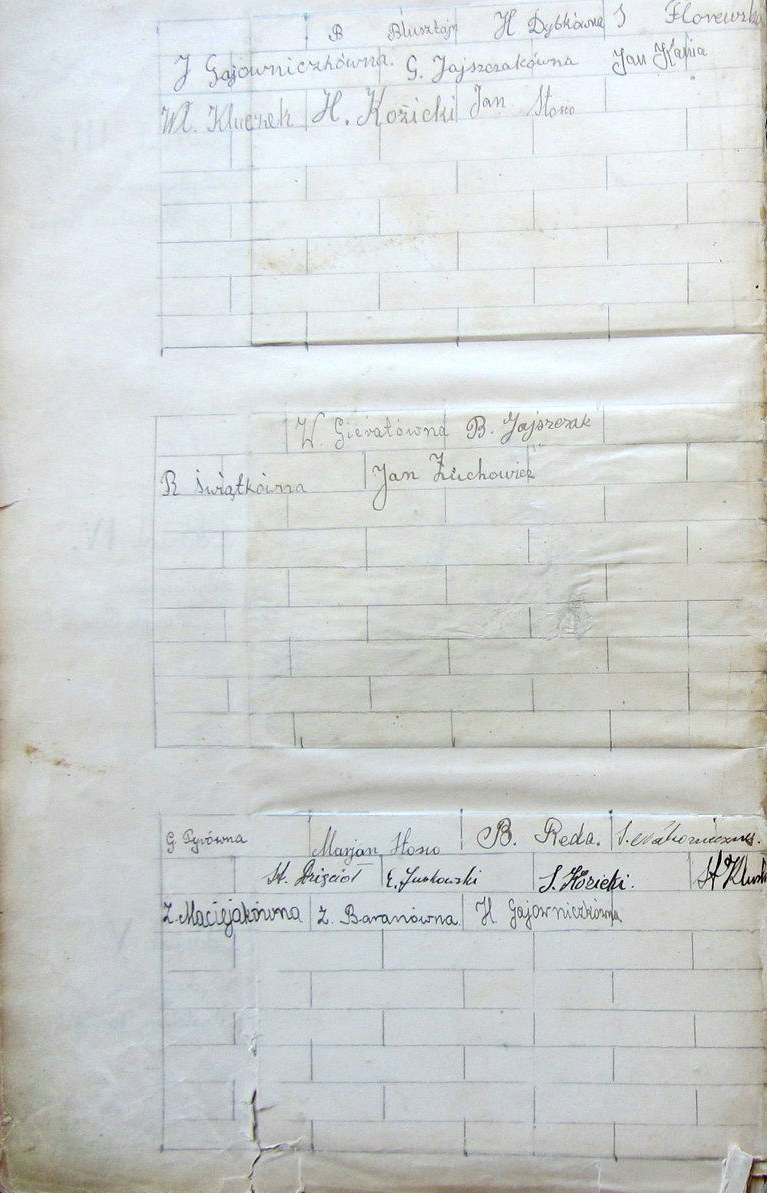 B Blusztajn H Dybkówna S
J Gajowniczkówna. G. Jajszczakówna Jan Kania
Wł. Kluczek H. Kozicki Jan Stoso
W. Gierałówna B. Jajszczak
R Świątkówna Jan Żuchowicz
G. Pyrówna Marjan Stoso B. Reda.
St. E. Jankowski S. Kozicki.
Z. Maciejakówna Z. Baranówna. H Gajowniczkówna